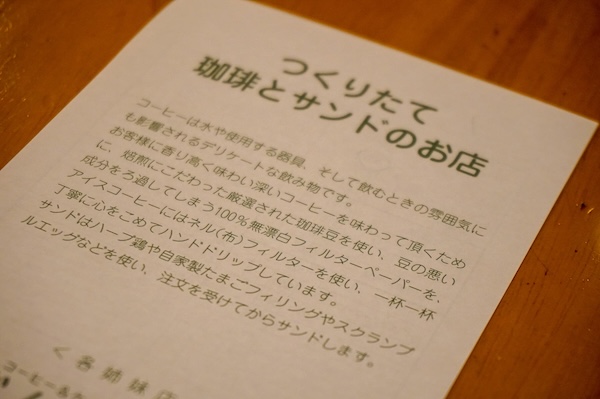 つくりたて
珈琲とサンドのお店
コーヒーは水や使用する器具、そして飲むときの雰囲気に
も影響されるデリケートな飲み物です。
お客様に香り高く味わい深いコーヒーを味わって頂くため
に、焙煎にこだわった厳選された珈琲豆を使い、豆の悪い
成分をろ過してしまう100%無漂白フィルターペーパーを、
アイスコーヒーにはネル(布)フィルターを使い、一杯一杯
丁寧に心をこめてハンドドリップしています。
サンドはハーブ鶏や自家製たまごフィリングやスクランブ
ルエッグなどを使い、注文を受けてからサンドします。
く各姉妹店
コーヒー&